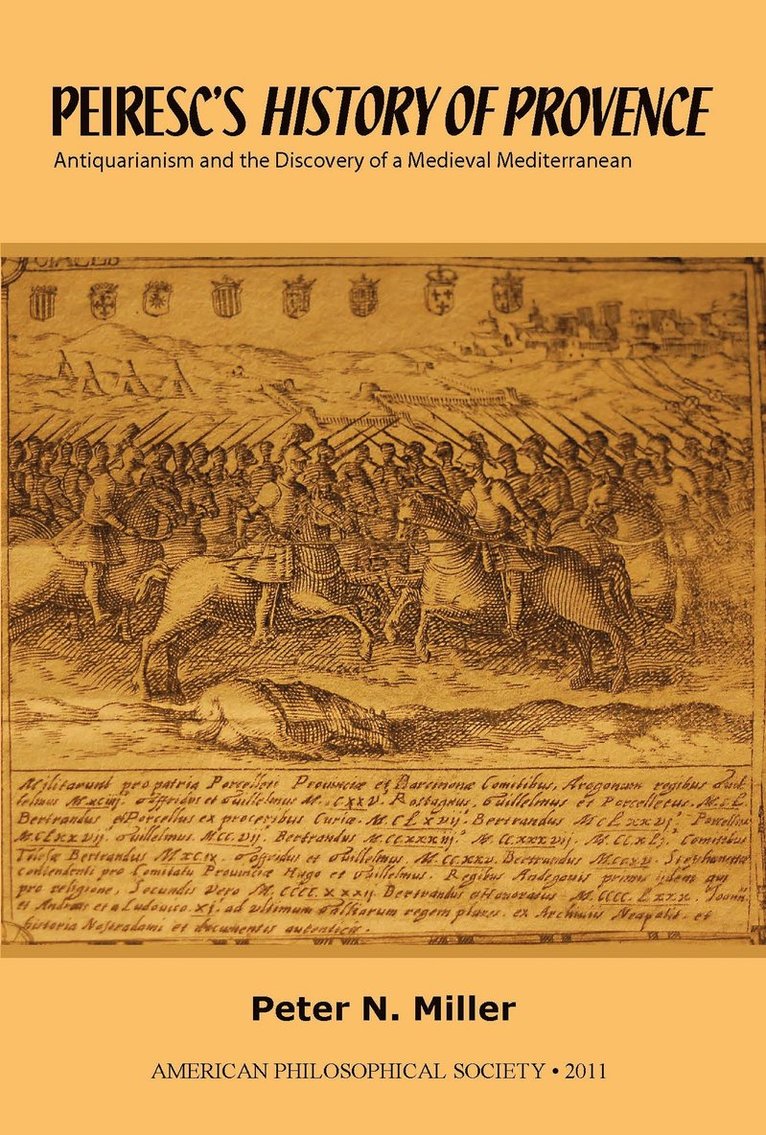 PEIRESC'S HISTORY OF PROVENCE
Antiquarianism and the Discovery of a Medieval Mediterranean
Militarunt pro patria Porcelleti Provinciæ et Barcinonæ Comitibus, Aragonum regibus
M.XCIIJ. et Guillelmus CXXV. Rostagnus, Guillelmus et Porcelletus.
Bertrandus et Porcellus ex proceribus Curiæ. M.CLXVIJ. Bertrandus M.CLXXVJ.
M.CLXXVIJ. Guillelmus. M.CC.VIJ. Bertrandus M.CCXXXIIJ. M.CCXXXVIJ. M.CCXLJ. Comitibus
Tolosæ Bertrandus M.XCIX. et Guillelmus. M.CCXXV. Bertrandus M.CCXV.
contendenti pro Comitatu Provinciæ Hugo et Guillelmus. Regibus Andegavis primis ijdem qui
pro religione, Secundis vero M.CCCC.XXXIJ. Bertrandus et Honoratus M.CCCC.LXXX.
et Andreas et a Ludovico XJ. ad ultimum Galliarum regem plures. ex Archivijs Neapolit. et
historia Nostradami et documentis autenticis.
Peter N. Miller
AMERICAN PHILOSOPHICAL SOCIETY • 2011